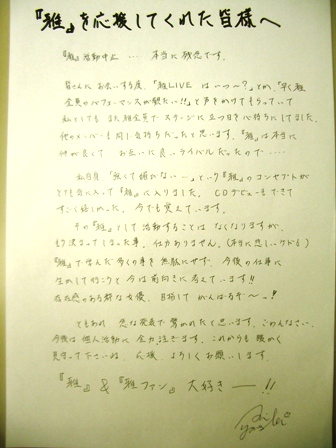 『雅』を応援してくれた皆様へ
『雅』活動中止 … 本当に残念です。
皆さんにお会いする度、「雅LIVE はいつ〜?」とか、「早く雅
全員のパフォーマンスが観たい!!」と声をかけてもらっていて
私としても また雅全員で ステージに立つ日を心待ちにしてました。
他のメンバーも同じ気持ちだったと思います。『雅』は本当に
仲が良くて お互いに良いライバルだったので……
という『雅』のコンセプトが
とても気に入って『雅』に入りました。CDデビューもできて
すごく嬉しかった。今でも覚えています。
その『雅』として活動することは なくなりますが、
もう決まってしまった事。仕方ありません。(本当に悲しいケドも)
『雅』で学んだ多くの事を無駄にせず、今後の仕事に
生かして行こうと今は前向きに考えています!!
存在感のある 女優、目指して がんばるぞ〜っ!
ともあれ 急な発表で驚かれたと思います。ごめんなさい。
今後は個人活動に全力注ぎます。これからも暖かく
見守って下さいね。応援、よろしくお願いします。
『雅』&『雅ファン』大好きーー!!